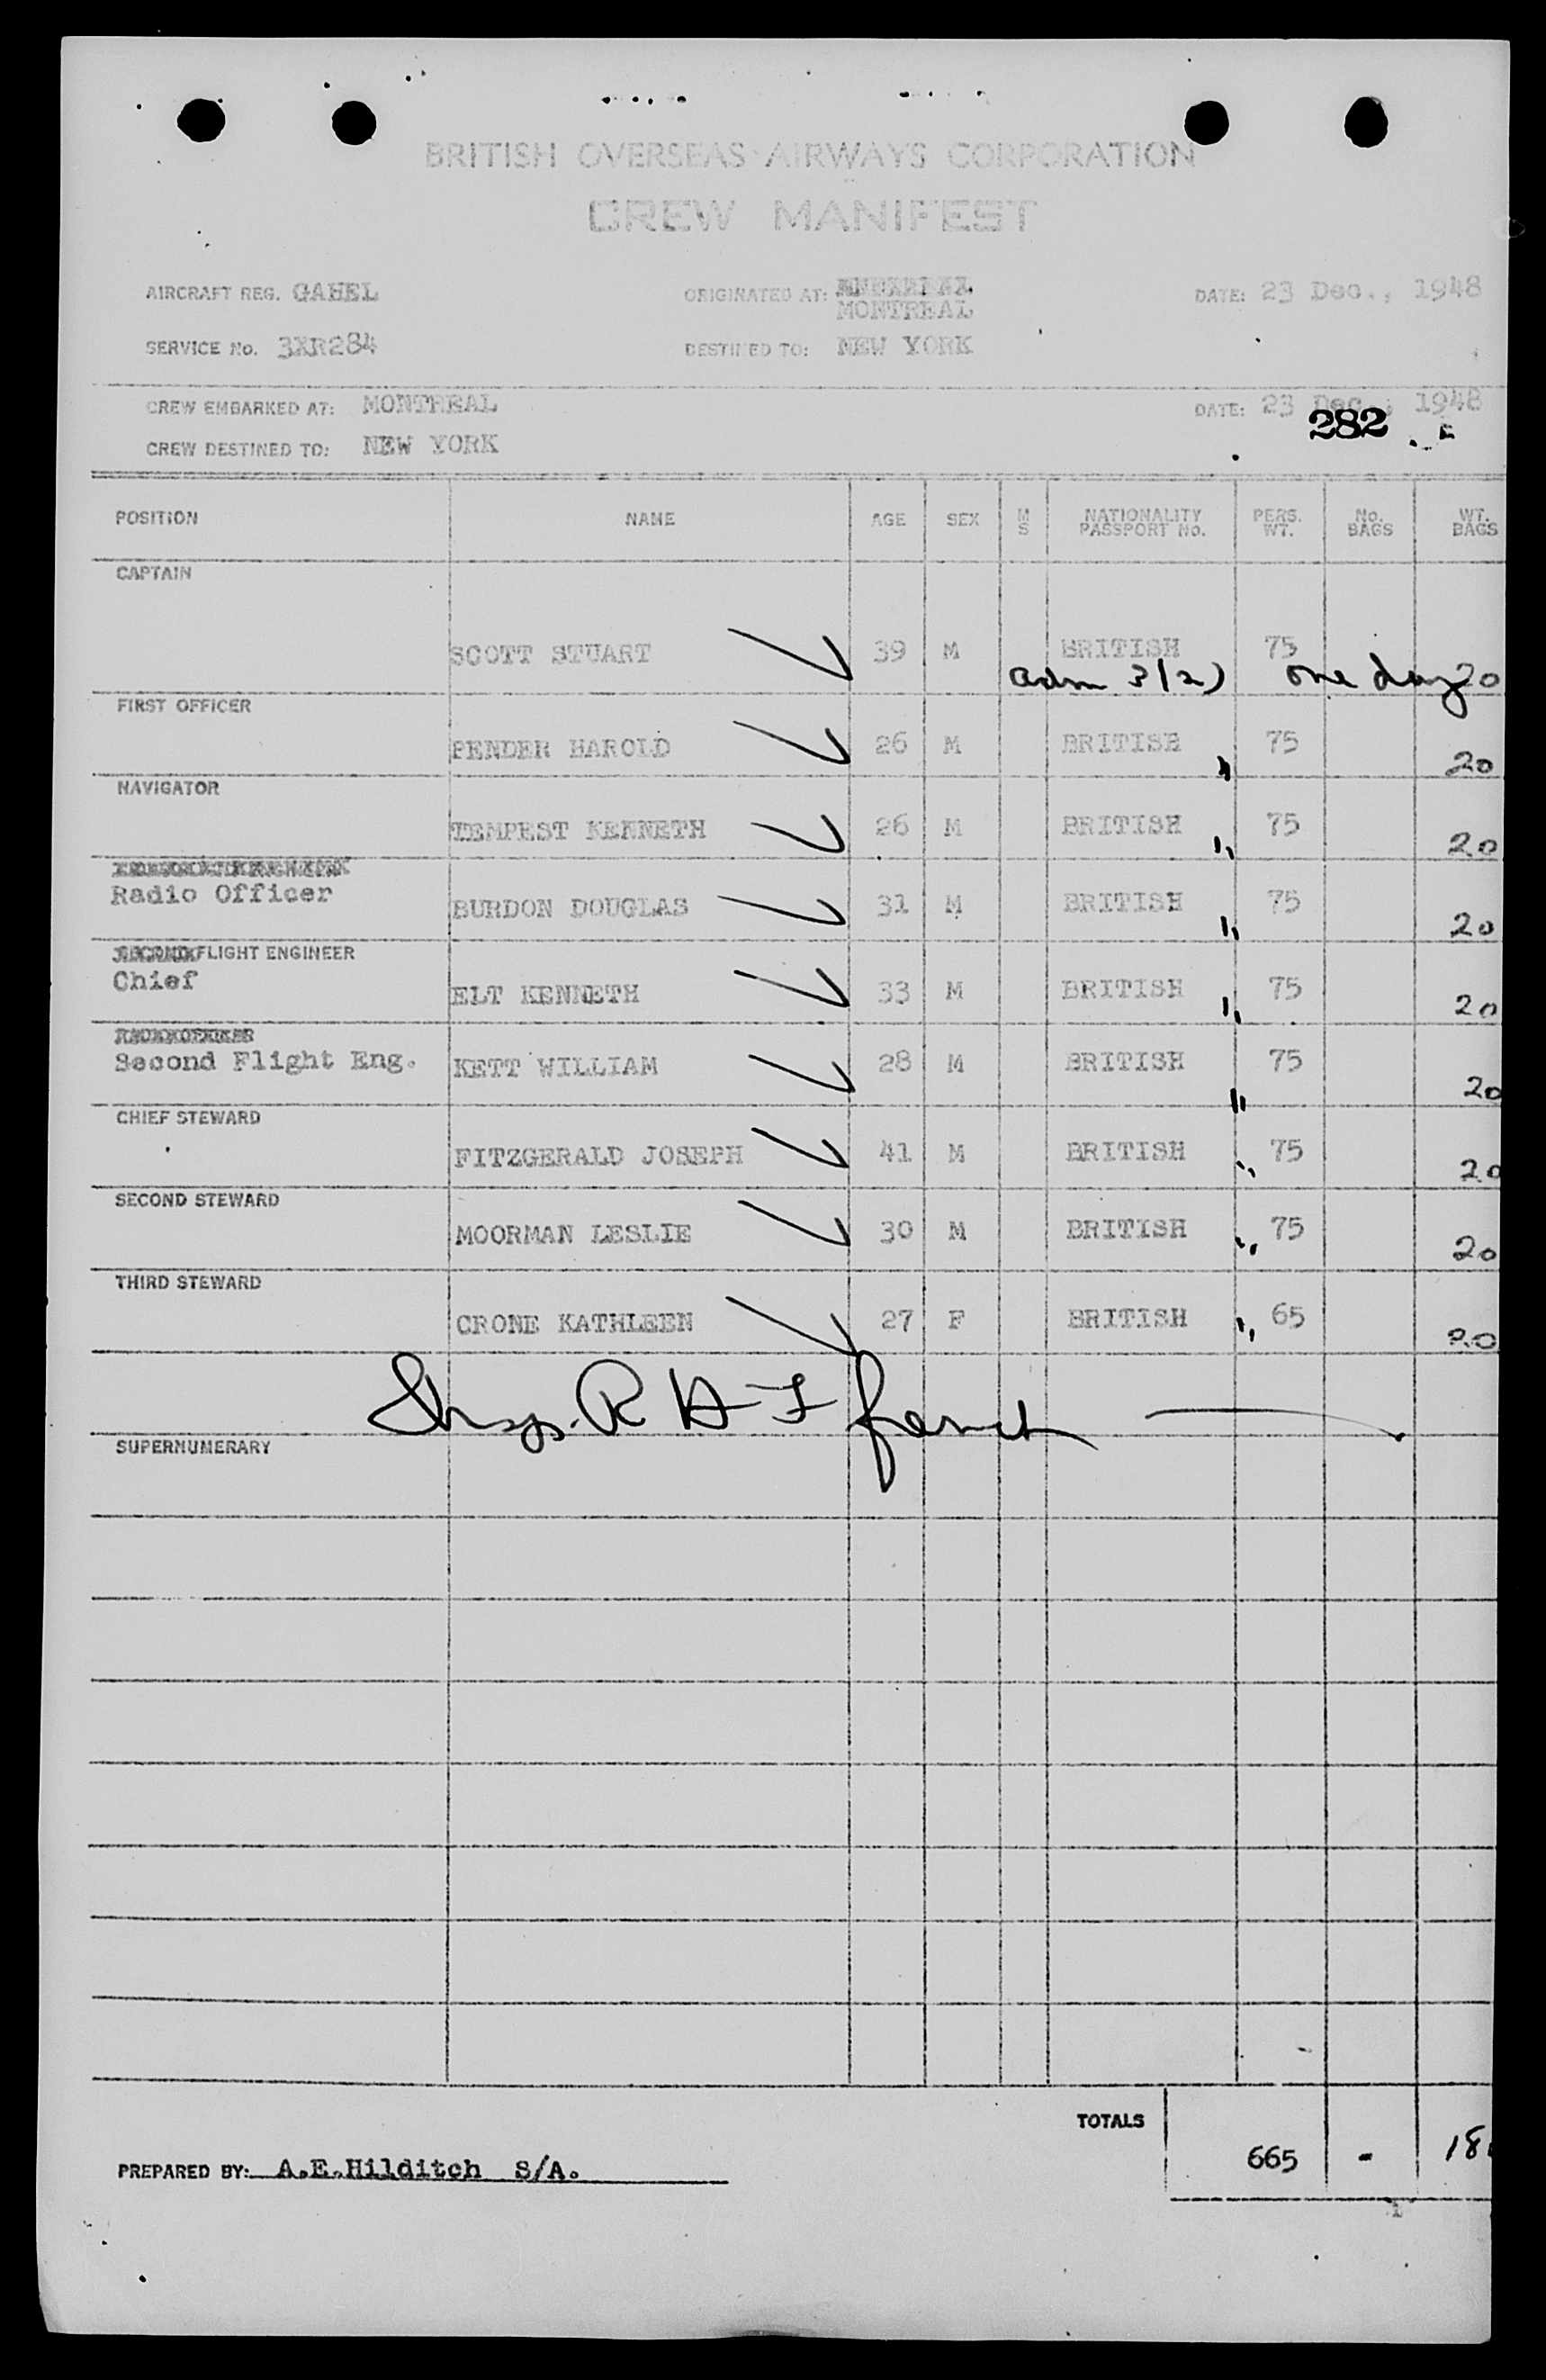 BRITISH OVERSEAS AIRWAYS CORPORATION
CREW MANIFEST
AIRCRAFT REG. GAHEL ORIGINATED AT: MONTREAL DATE: 23 Dec., 1948
SERVICE No. 3XR284 DESTINED TO: NEW YORK
CREW EMBARKED AT: MONTREAL DATE: 23 Dec., 1948
282
CREW DESTINED TO: NEW YORK
POSITION NAME AGE SEX M S NATIONALITY PASSPORT No. PERS. WT. No. BAGS WT. BAGS
CAPTAIN
SCOTT STUART 39 M BRITISH 75
adm 3(2) one day 20
FIRST OFFICER
PENDER HAROLD 26 M BRITISH 75
" 20
NAVIGATOR
TEMPEST KENNETH 26 M BRITISH 75
" 20
Radio Officer
BURDON DOUGLAS 31 M BRITISH 75
" 20
SECOND FLIGHT ENGINEER
Chief
ELT KENNETH 33 M BRITISH 75
" 20
RADIO OFFICER
Second Flight Eng. KETT WILLIAM 28 M BRITISH 75
" 20
CHIEF STEWARD
FITZGERALD JOSEPH 41 M BRITISH " 75
20
SECOND STEWARD
MOORMAN LESLIE 30 M BRITISH " 75
20
THIRD STEWARD
CRONE KATHLEEN 27 F BRITISH " 65
20
SUPERNUMERARY
TOTALS
665 - 18
PREPARED BY: A.E.Hilditch S/A.